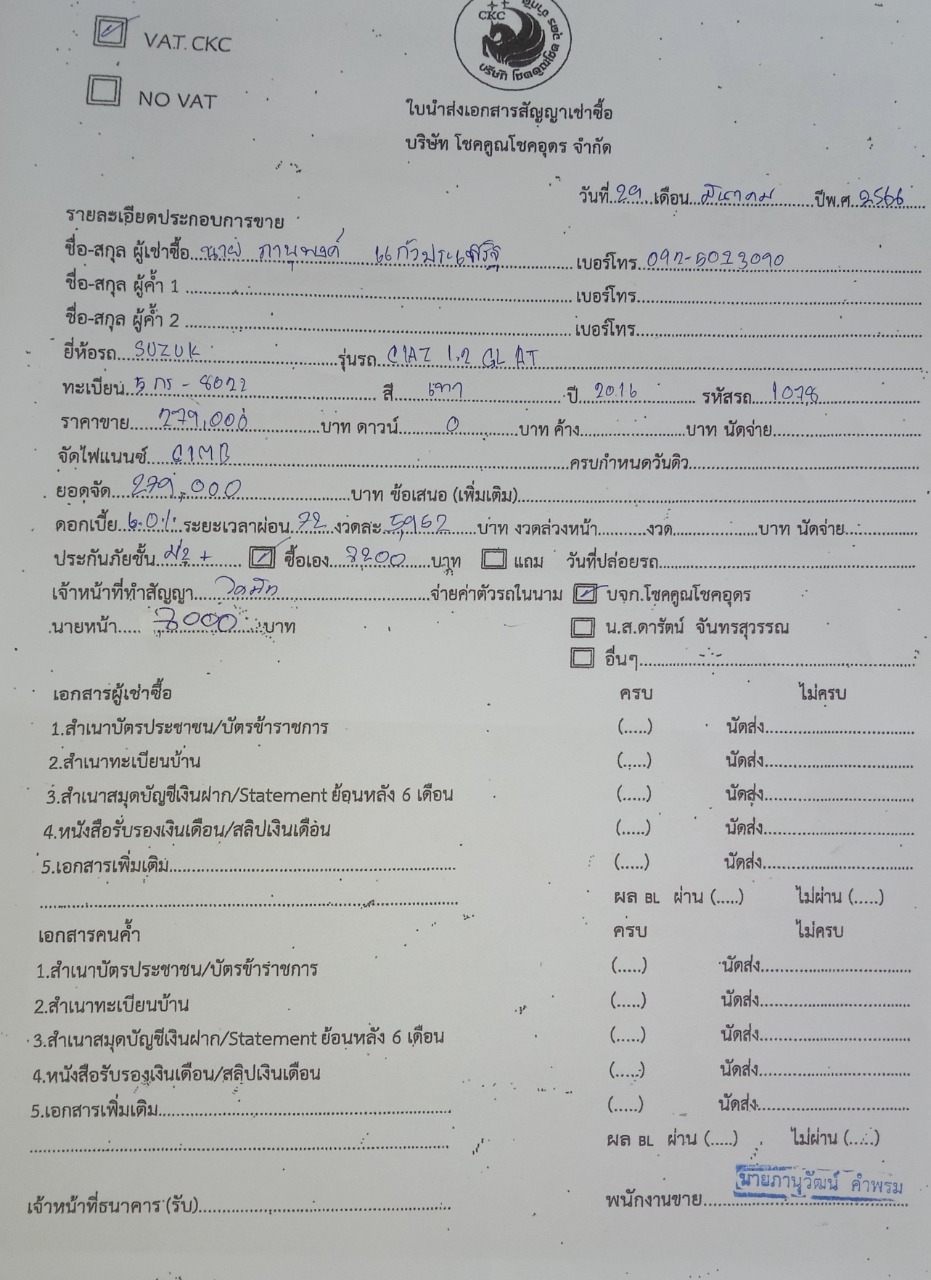 VAT.CKC
NO VAT
CKC
บริษัท โชคคูณโชค
ใบนำส่งเอกสารสัญญาเช่าซื้อ
บริษัท โชคคูณโชคอุดร จำกัด
วันที่ 29 เดือน มีนาคม ปีพ.ศ. 2566
รายละเอียดประกอบการขาย
ชื่อ-สกุล ผู้เช่าซื้อ นาย ภานุพงศ์ แก้วประเสริฐ เบอร์โทร 092-5023090
ชื่อ-สกุล ผู้ค้ำ 1 เบอร์โทร
ชื่อ-สกุล ผู้ค้ำ 2 เบอร์โทร
ยี่ห้อรถ SUZUK รุ่นรถ CIAZ 1.2 GL AT
ทะเบียน 5 กร - 8022 สี เทา ปี 2016 รหัสรถ 1078
ราคาขาย 279,000 บาท ดาวน์ 0 บาท ค้าง บาท นัดจ่าย
จัดไฟแนนซ์ CIMB ครบกำหนดวันดิว
ยอดจัด 279,000 บาท ข้อเสนอ (เพิ่มเติม)
ดอกเบี้ย 6.0% ระยะเวลาผ่อน 72 งวดละ 5952 บาท งวดล่วงหน้า งวด บาท นัดจ่าย
ประกันภัยชั้น 2+ ซื้อเอง 8200 บาท แถม วันที่ปล่อยรถ
เจ้าหน้าที่ทำสัญญา จ่ายค่าตัวรถในนาม บจก.โชคคูณโชคอุดร
นายหน้า 7000 บาท น.ส.ดารัตน์ จันทรสุวรรณ
อื่นๆ
เอกสารผู้เช่าซื้อ ครบ ไม่ครบ
1.สำเนาบัตรประชาชน/บัตรข้าราชการ (.....) นัดส่ง
2.สำเนาทะเบียนบ้าน (.....) นัดส่ง
3.สำเนาสมุดบัญชีเงินฝาก/Statement ย้อนหลัง 6 เดือน (.....) นัดส่ง
4.หนังสือรับรองเงินเดือน/สลิปเงินเดือน (.....) นัดส่ง
5.เอกสารเพิ่มเติม (.....) นัดส่ง
ผล BL ผ่าน (.....) ไม่ผ่าน (.....)
เอกสารคนค้ำ ครบ ไม่ครบ
1.สำเนาบัตรประชาชน/บัตรข้าราชการ (.....) นัดส่ง
2.สำเนาทะเบียนบ้าน (.....) นัดส่ง
3.สำเนาสมุดบัญชีเงินฝาก/Statement ย้อนหลัง 6 เดือน (.....) นัดส่ง
4.หนังสือรับรองเงินเดือน/สลิปเงินเดือน (.....) นัดส่ง
5.เอกสารเพิ่มเติม (.....) นัดส่ง
ผล BL ผ่าน (.....) ไม่ผ่าน (.....)
เจ้าหน้าที่ธนาคาร (รับ) พนักงานขาย นายภานุวัฒน์ คำพรม